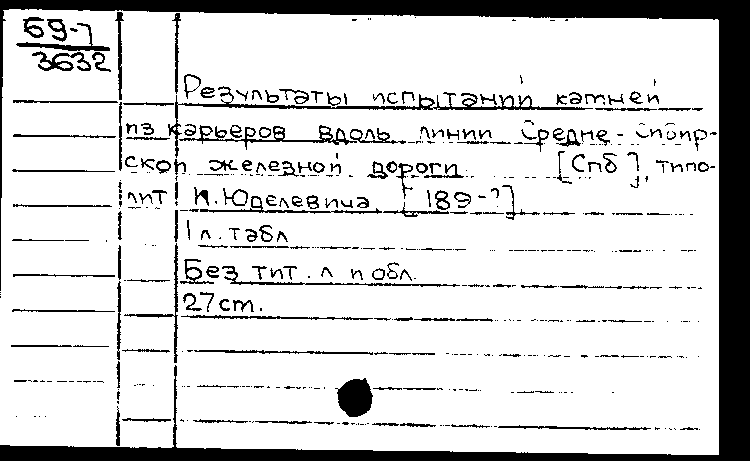 69-7
3632
Результаты испытаний камней
из карьеров вдоль линии Средне-Сибир-
ской железной дороги [Спб], типо-
лит И. Юделевича, [189-?]
1 л. табл
Без тит. л и обл.
27 cm.